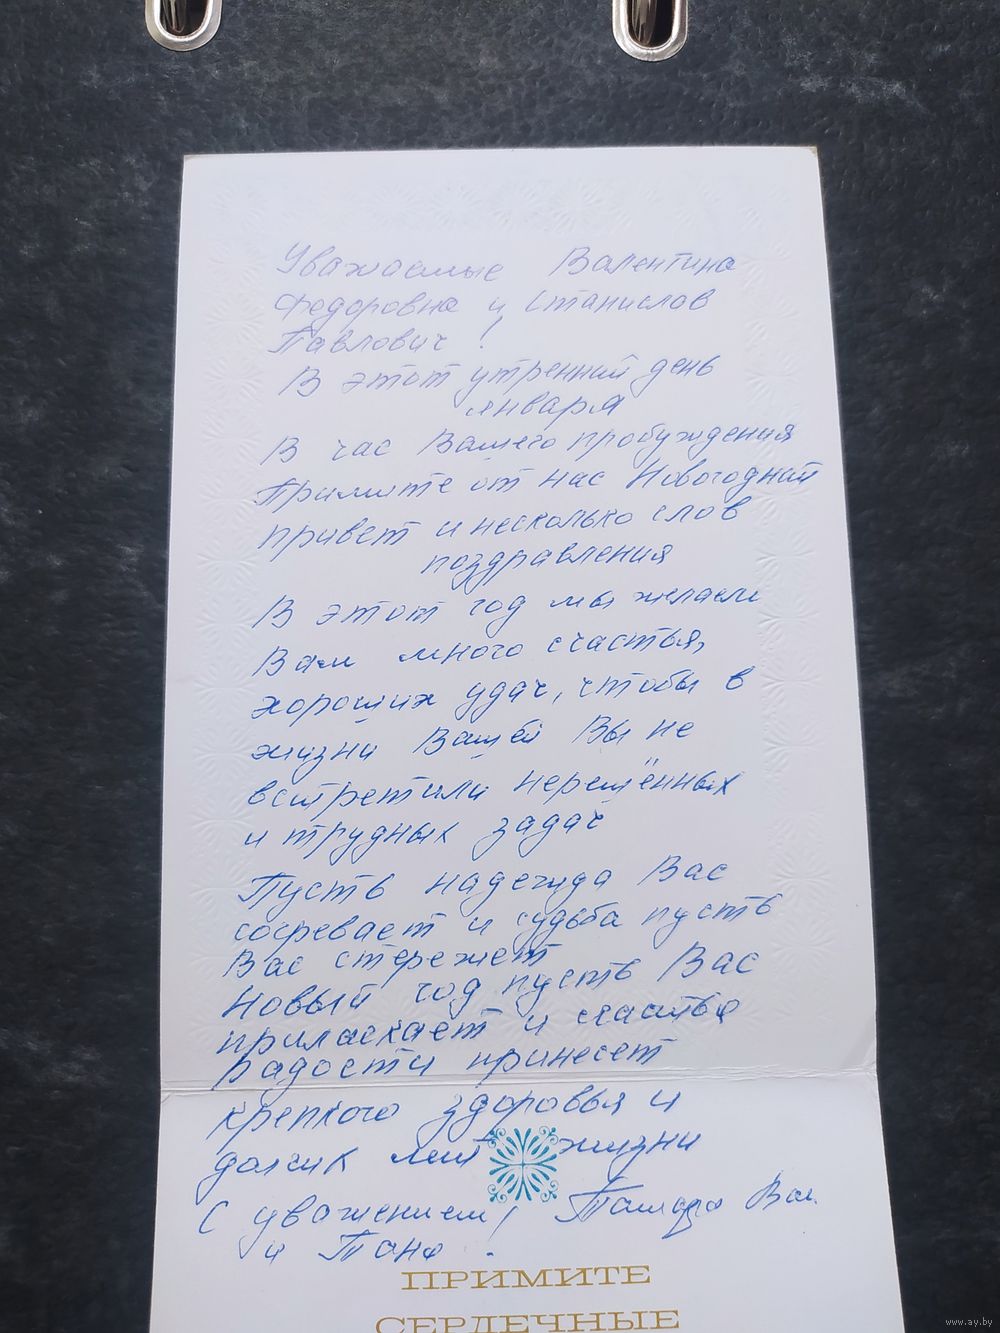 Уважаемые Валентина
Федоровна и Станислав
Павлович!
В этот утренний день
января
В час Вашего пробуждения
Примите от нас Новогодний
привет и несколько слов
поздравления
В этот год мы желаем
Вам много счастья,
хороших удач, чтобы в
жизни Вашей Вы не
встретили нерешённых
и трудных задач
Пусть надежда Вас
согревает и судьба пусть
Вас стережет
Новый год пусть Вас
приласкает и счастье
радости принесет
крепкого здоровья и
долгих лет жизни
С уважением! Тамара Вас.
и Таня.
ПРИМИТЕ
СЕРДЕЧНЫЕ
www.ay.by